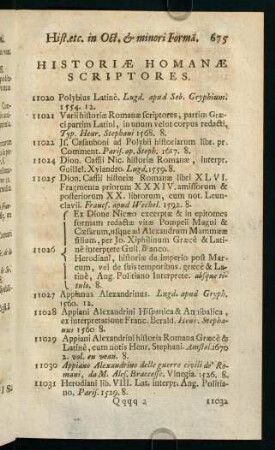 Hist. etc. in Oct. & minori Formâ. 675
HISTORIÆ HOMANÆ
SCRIPTORES.
11020 Polybius Latinè. Lugd. apud Seb. Gryphium.
1554. 12.
11021 Varii historiæ Romanæ scriptores, partim Græ-
ci partim Latini, in unum velut corpus redacti,
Typ. Henr. Stephani 1568. 8.
11022 If. Casauboni ad Polybii historiarum libr. pr.
Comment. Paris. ap. Steph. 1617. 8.
11024 Dion. Cassii Nic. historiæ Romanæ, interpr.
Guillel. Xylandro. Lugd. 1559. 8.
11025 Dion. Cassii historiæ Romanæ libri XLVI.
Fragmenta priorum XXXIV. amissorum &
posteriorum XX. librorum, cum not. Leun-
clavii. Francf. apud Wechel. 1592. 8.
Ex Dione Nicæo excerptæ & in epitomes
formam redactæ vitæ Pompeii Magni &
Cæsarum, usque ad Alexandrum Mammææ
filium, per Jo. Xiphilinum Græcè & Lati-
nè interprete Guil. Blanco.
11026
Herodiani, historiæ de imperio post Mar-
cum, vel de suis temporibus. græcè & Lati-
nè, Ang. Politiano interprete. absque ti-
tulo. 8.
11027 Appianus Alexandrinus. Lugd. apud Gryph.
1560. 12.
11028 Appiani Alexandrini Hispanica & Annibalica,
ex interpretatione Franc. Berald. Henr. Stepha-
nus 1560. 8.
11029 Appiani Alexandrini historia Romana Græcè &
Latinè, cum notis Henr. Stephani. Amstel. 1670
2. vol. en veau. 8.
11030 Appiano Alexandrino delle guerre civili de' Ro-
mani, da M. Ales. Braccesse. Vinegia. 1526. 8.
11031 Herodiani lib. VIII. Lat. interpr. Ang. Politia-
no, Paris. 1529. 8.
Qqqq 2 11032